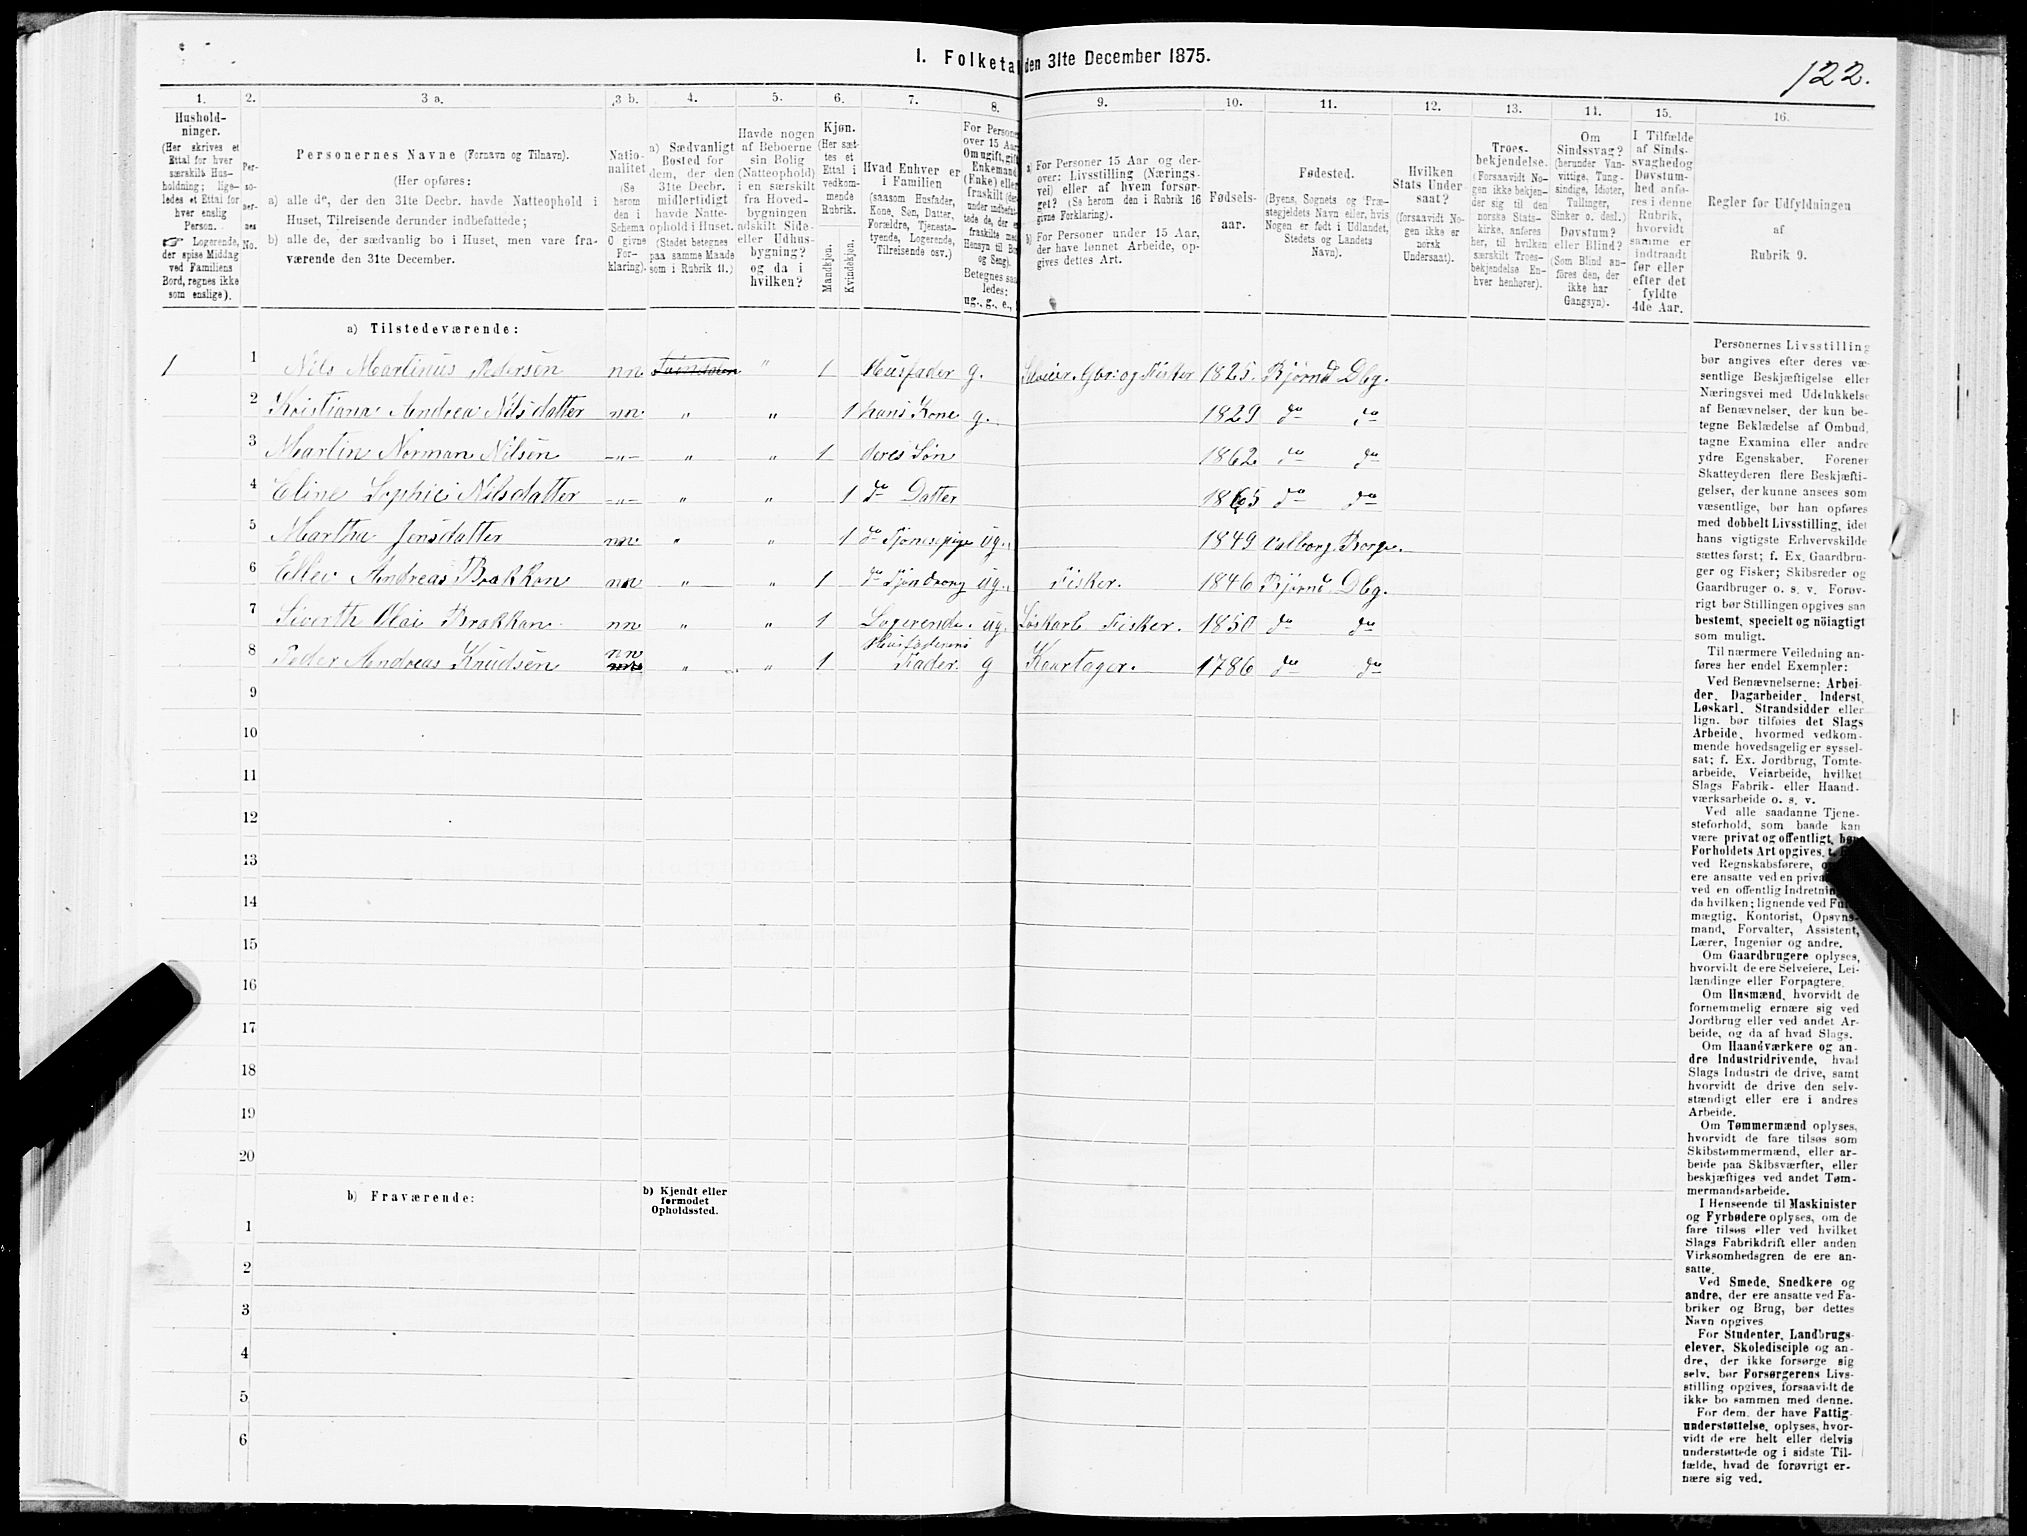 I. Folketal den 31te December 1875.
122.
1.
2.
3 a.
3 b.
4.
5.
6.
7.
8.
9.
10.
11.
12.
13.
14.
15.
16.
Hushold-
ninger.
(Her skrives et
Ettal for hver
særskilt Hus-
holdning; lige-
ledes et Ettal for
hver enslig
Person.
☞ Logerende,
der spise Middag
ved Familiens
Bord, regnes ikke
som enslige).
Per-
so-
ner-
nes
No.
Personernes Navne (Fornavn og Tilnavn).
(Her opføres:
a) alle de, der den 31te Decbr. havde Natteophold i
Huset, Tilreisende derunder indbefattede;
b) alle de, der sædvanlig bo i Huset, men vare fra-
værende den 31te December.
Natio-
nalitet
(Se
herom
den i
Schema
O givne
For-
klaring).
a) Sædvanligt
Bosted for
dem, der den
31te Decbr.
midlertidigt
havde Natte-
ophold i Huset.
(Stedet betegnes
paa samme Maade
som i Rubrik 11.)
Havde nogen
af Beboerne
sin Bolig
(Natteophold)
i en særskilt
fra Hoved-
bygningen
adskilt Side-
eller Udhus-
bygning?
og da i
hvilken?
Kjøn.
(Her sæt-
tes et
Ettal i
vedkom-
mende
Rubrik.
Mandkjøn.
Kvindekjøn.
Hvad Enhver er
i Familien
(saasom Husfader,
Kone, Søn, Datter,
Forældre, Tjeneste-
tyende, Logerende,
Tilreisende osv.)
For Persone
over 15 Aar,
Om ugift, gift,
Enkemand
(Enke) eller
fraskilt (der-
under indbefat-
tede de, der e
fraskilte med
Hensyn til Bo
og Seng).
Betegnes saa-
ledes:
ug., g., e.,
a) For Personer 15 Aar og der-
over: Livsstilling (Nærings-
vei) eller af hvem forsør-
get? (Se herom den i Rubrik 16
givne Forklaring).
b) For Personer under 15 Aar,
der have lønnet Arbeide, op-
gives dettes Art.
Fødsels-
aar.
Fødested.
(Byens, Sognets og Præ-
stegjeldets Navn eller, hvis
Nogen er født i Udlandet,
Stedets og Landets
Navn).
Hvilken
Stats Under-
saat?
(forsaavidt No-
gen ikke er
norsk
Undersaat).
Troes-
bekjendelse.
(Forsaavidt No-
gen ikke bekjen-
der sig til den
norske Stats-
kirke, anføres
her, til hvilken
særskilt Troes-
bekjendelse En-
hver henhører).
Om
Sindssvag?
(herunder Van-
vittige, Tung-
sindige, Idioter,
Tullinger,
Sinker o. desl.)
Døvstum?
eller Blind?
(Som Blind an-
føres den, der
ikke har
Gangsyn).
I Tilfælde
af Sinds-
svaghed og
Døvstum-
hed anfø-
res i denne
Rubrik,
hvorvidt
samme er
indtraadt
før eller
efter det
fyldte
4de Aar.
Regler for Udfyldningen
af
Rubrik 9.
a) Tilstedeværende:
1 1 Nils Martinus Pedersen nn " 1 Husfader g. Selveier, Gbr. og Fisker 1825. Bjørnø Dbg.
2 Kristiana Andrea Nilsdatter nn " " 1 hans Kone g. 1829 do do
3 Martin Norman Nilsen -"- " " 1 deres Søn 1862 do do
4 Eline Sophie Nilsdatter -"- " " 1 do Datter 1865 do do
5 Martha Jensdatter nn " " 1 do Tjenestpige ug. 1849 Valborg Borge.
6 Ellev Andreas Brakkan nn " " 1 do Tjendreng ug. Fisker. 1846 Bjørnø Dbg.
7 Siverth Olai Brakkan nn " " 1 Logerende ug. Løskarl Fisker. 1850 do do
8 Peder Andreas Knudsen nn " " 1 Husfaderens Fader g Kaartager. 1786 do do
9
10
11
12
13
14
15
16
17
18
19
20
b) Fraværende:
b) Kjendt eller
formodet
Opholdssted.
1
2
3
4
5
6
Personernes Livsstilling
bør angives efter deres væ-
sentlige Beskjæftigelse eller
Næringsvei med Udelukkelse
af Benævnelser, der kun be-
tegne Beklædelse af Ombud,
tagne Examina eller andre
ydre Egenskaber. Forener
Skatteyderen flere Beskjæfti-
gelser, der kunne ansees som
væsentlige, bør han opføres
med dobbelt Livsstilling, idet
hans vigtigste Erhvervskilde
sættes først; f. Ex. Gaardbru-
ger og Fisker; Skibsreder og
Gaardbruger o. s. v. Forøv-
rigt bør Stillingen opgives saa
bestemt, specielt og nöiagtigt
som muligt.
Til nærmere Veiledning an-
føres her endel Exempler:
Ved Benævnelserne: Arbei-
der, Dagarbeider, Inderst,
Løskarl, Strandsidder eller
lign. bør tilføies det Slags
Arbeide, hvormed vedkom-
mende hovedsagelig er syssel-
sat; f. Ex. Jordbrug, Tomte-
arbeide, Veiarbeide, hvilket
Slags Fabrik- eller Haand-
værksarbeide o. s. v.
Ved alle saadanne Tjene-
steforhold, som baade kan
være privat og offentligt, bør
Forholdets Art opgives, t.
ved Regnskabsførere,
ere ansatte ved en priva
ved en offentlig Indretnin
da hvilken; lignende ved Fuld-
mægtig, Kontorist, Opsyns-
mand, Forvalter, Assistent,
Lærer, Ingeniør og andre.
Om Gaardbrugere oplyses,
hvorvidt de ere Selveiere, Lei-
lændinge eller Forpagtere.
Om Husmænd, hvorvidt de
fornemmelig ernære sig ved
Jordbrug eller ved andet Ar-
beide, og da af hvad Slags.
Om Haandværkere og an-
dre Industridrivende, hvad
Slags Industri de drive, samt
hvorvidt de drive den selv-
stændigt eller ere i andres
Arbeide.
Om Tømmermænd oplyses,
hvorvidt de fare tilsøs som
Skibstømmermænd, eller ar-
beide paa Skibsværfter, eller
beskjæftiges ved andet Tøm-
mermandsarbeide.
I Henseende til Maskinister
og Fyrbødere oplyses, om de
fare tilsøs eller ved hvilket
Slags Fabrikdrift eller anden
Virksomhedsgren de ere an-
satte.
Ved Smede, Snedkere og
andre, der ere ansatte ved Fa-
briker og Brug, bør dettes
Navn opgives.
For Studenter, Landbrugs-
elever, Skoledisciple og an-
dre, der ikke forsørge sig
selv, bør Forsørgerens Livs-
stilling opgives, forsaavidt de
ikke bo sammen med denne.
For dem, der have Fattig-
understøttelse, oplyses, hvor-
vidt de ere helt eller delvis
understøttede og i sidste Til-
fælde, hvad de forøvrigt er-
nære sig ved.